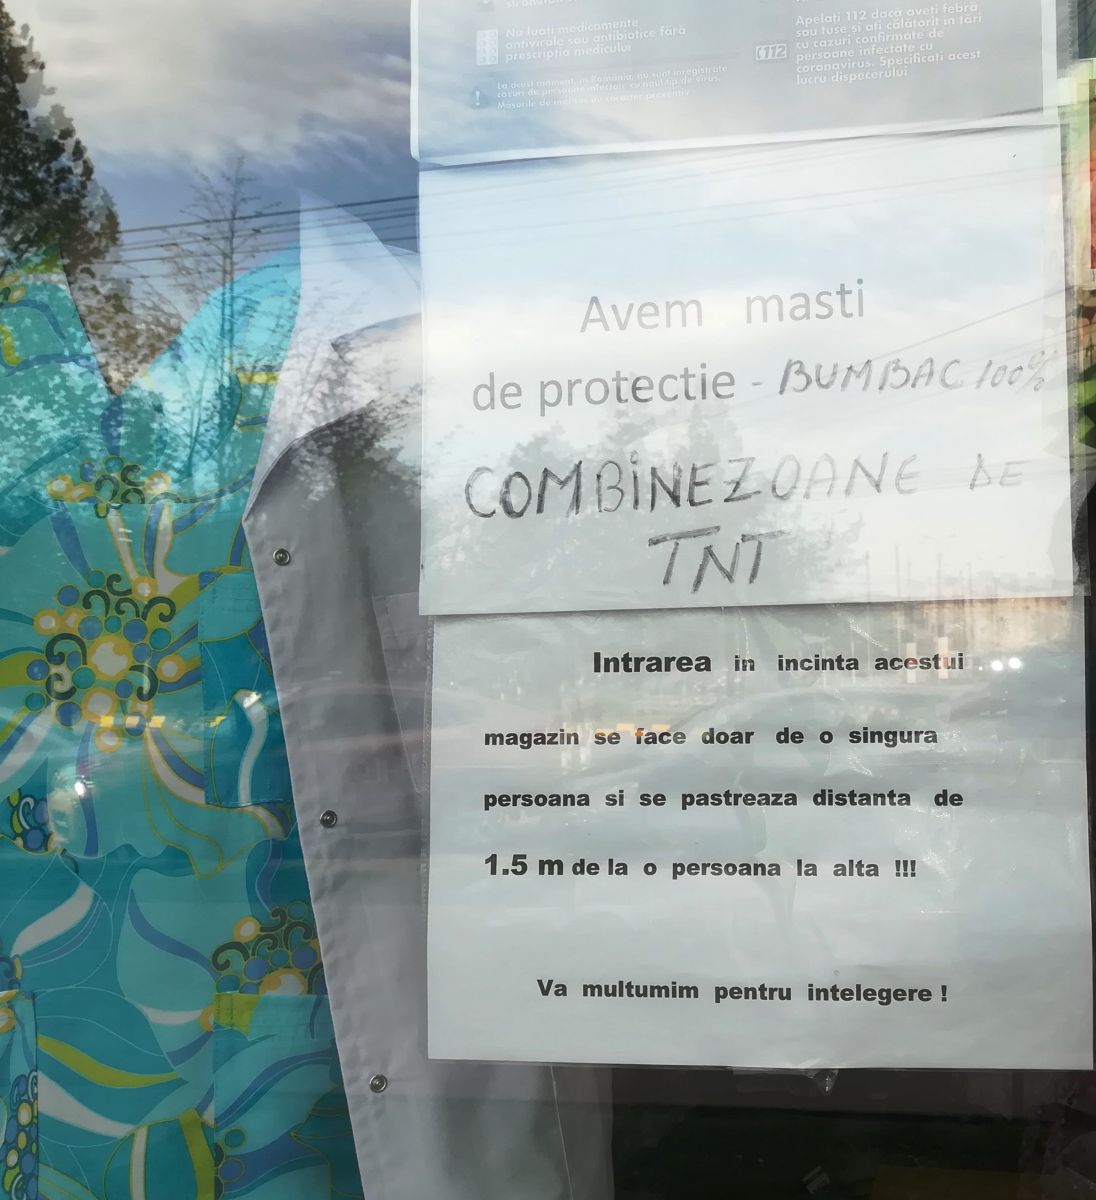 Nu luați medicamente
antivirale sau antibiotice fără
prescripția medicului
La acest moment, în România, nu sunt înregistrate
cazuri de persoane infectate cu noul tip de virus.
Măsurile de mai sus au caracter preventiv
Apelați 112 dacă aveți febră
sau tuse și ați călătorit în țări
cu cazuri confirmate de
persoane infectate cu
coronavirus. Specificați acest
lucru dispecerului
112
Avem masti
de protectie - BUMBAC 100%
COMBINEZOANE DE
TNT
Intrarea in incinta acestui
magazin se face doar de o singura
persoana si se pastreaza distanta de
1.5 m de la o persoana la alta !!!
Va multumim pentru intelegere !